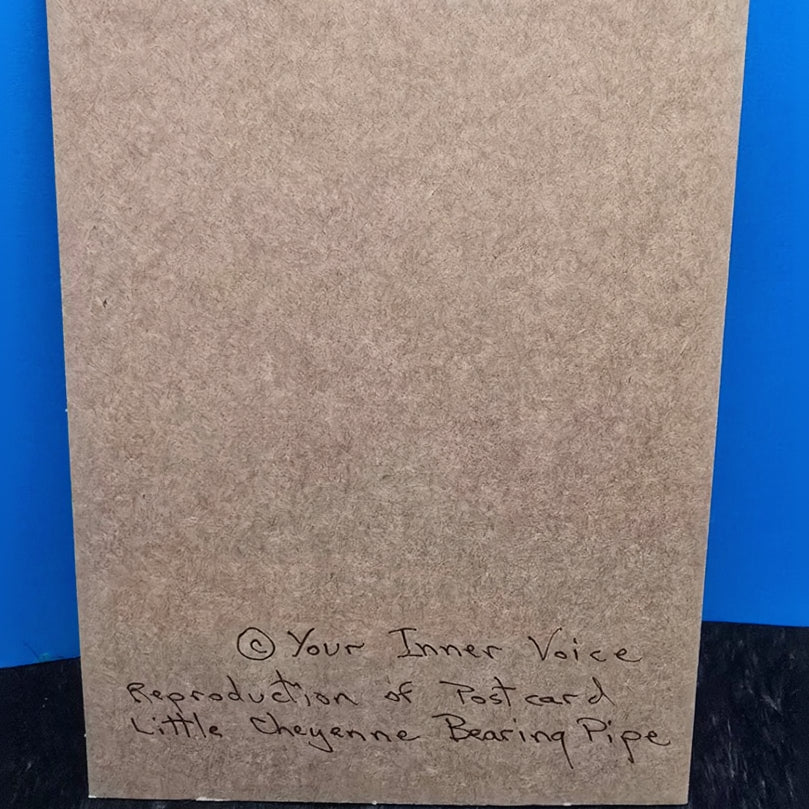 © Your Inner Voice
Reproduction of Postcard
Little Cheyenne Bearing Pipe